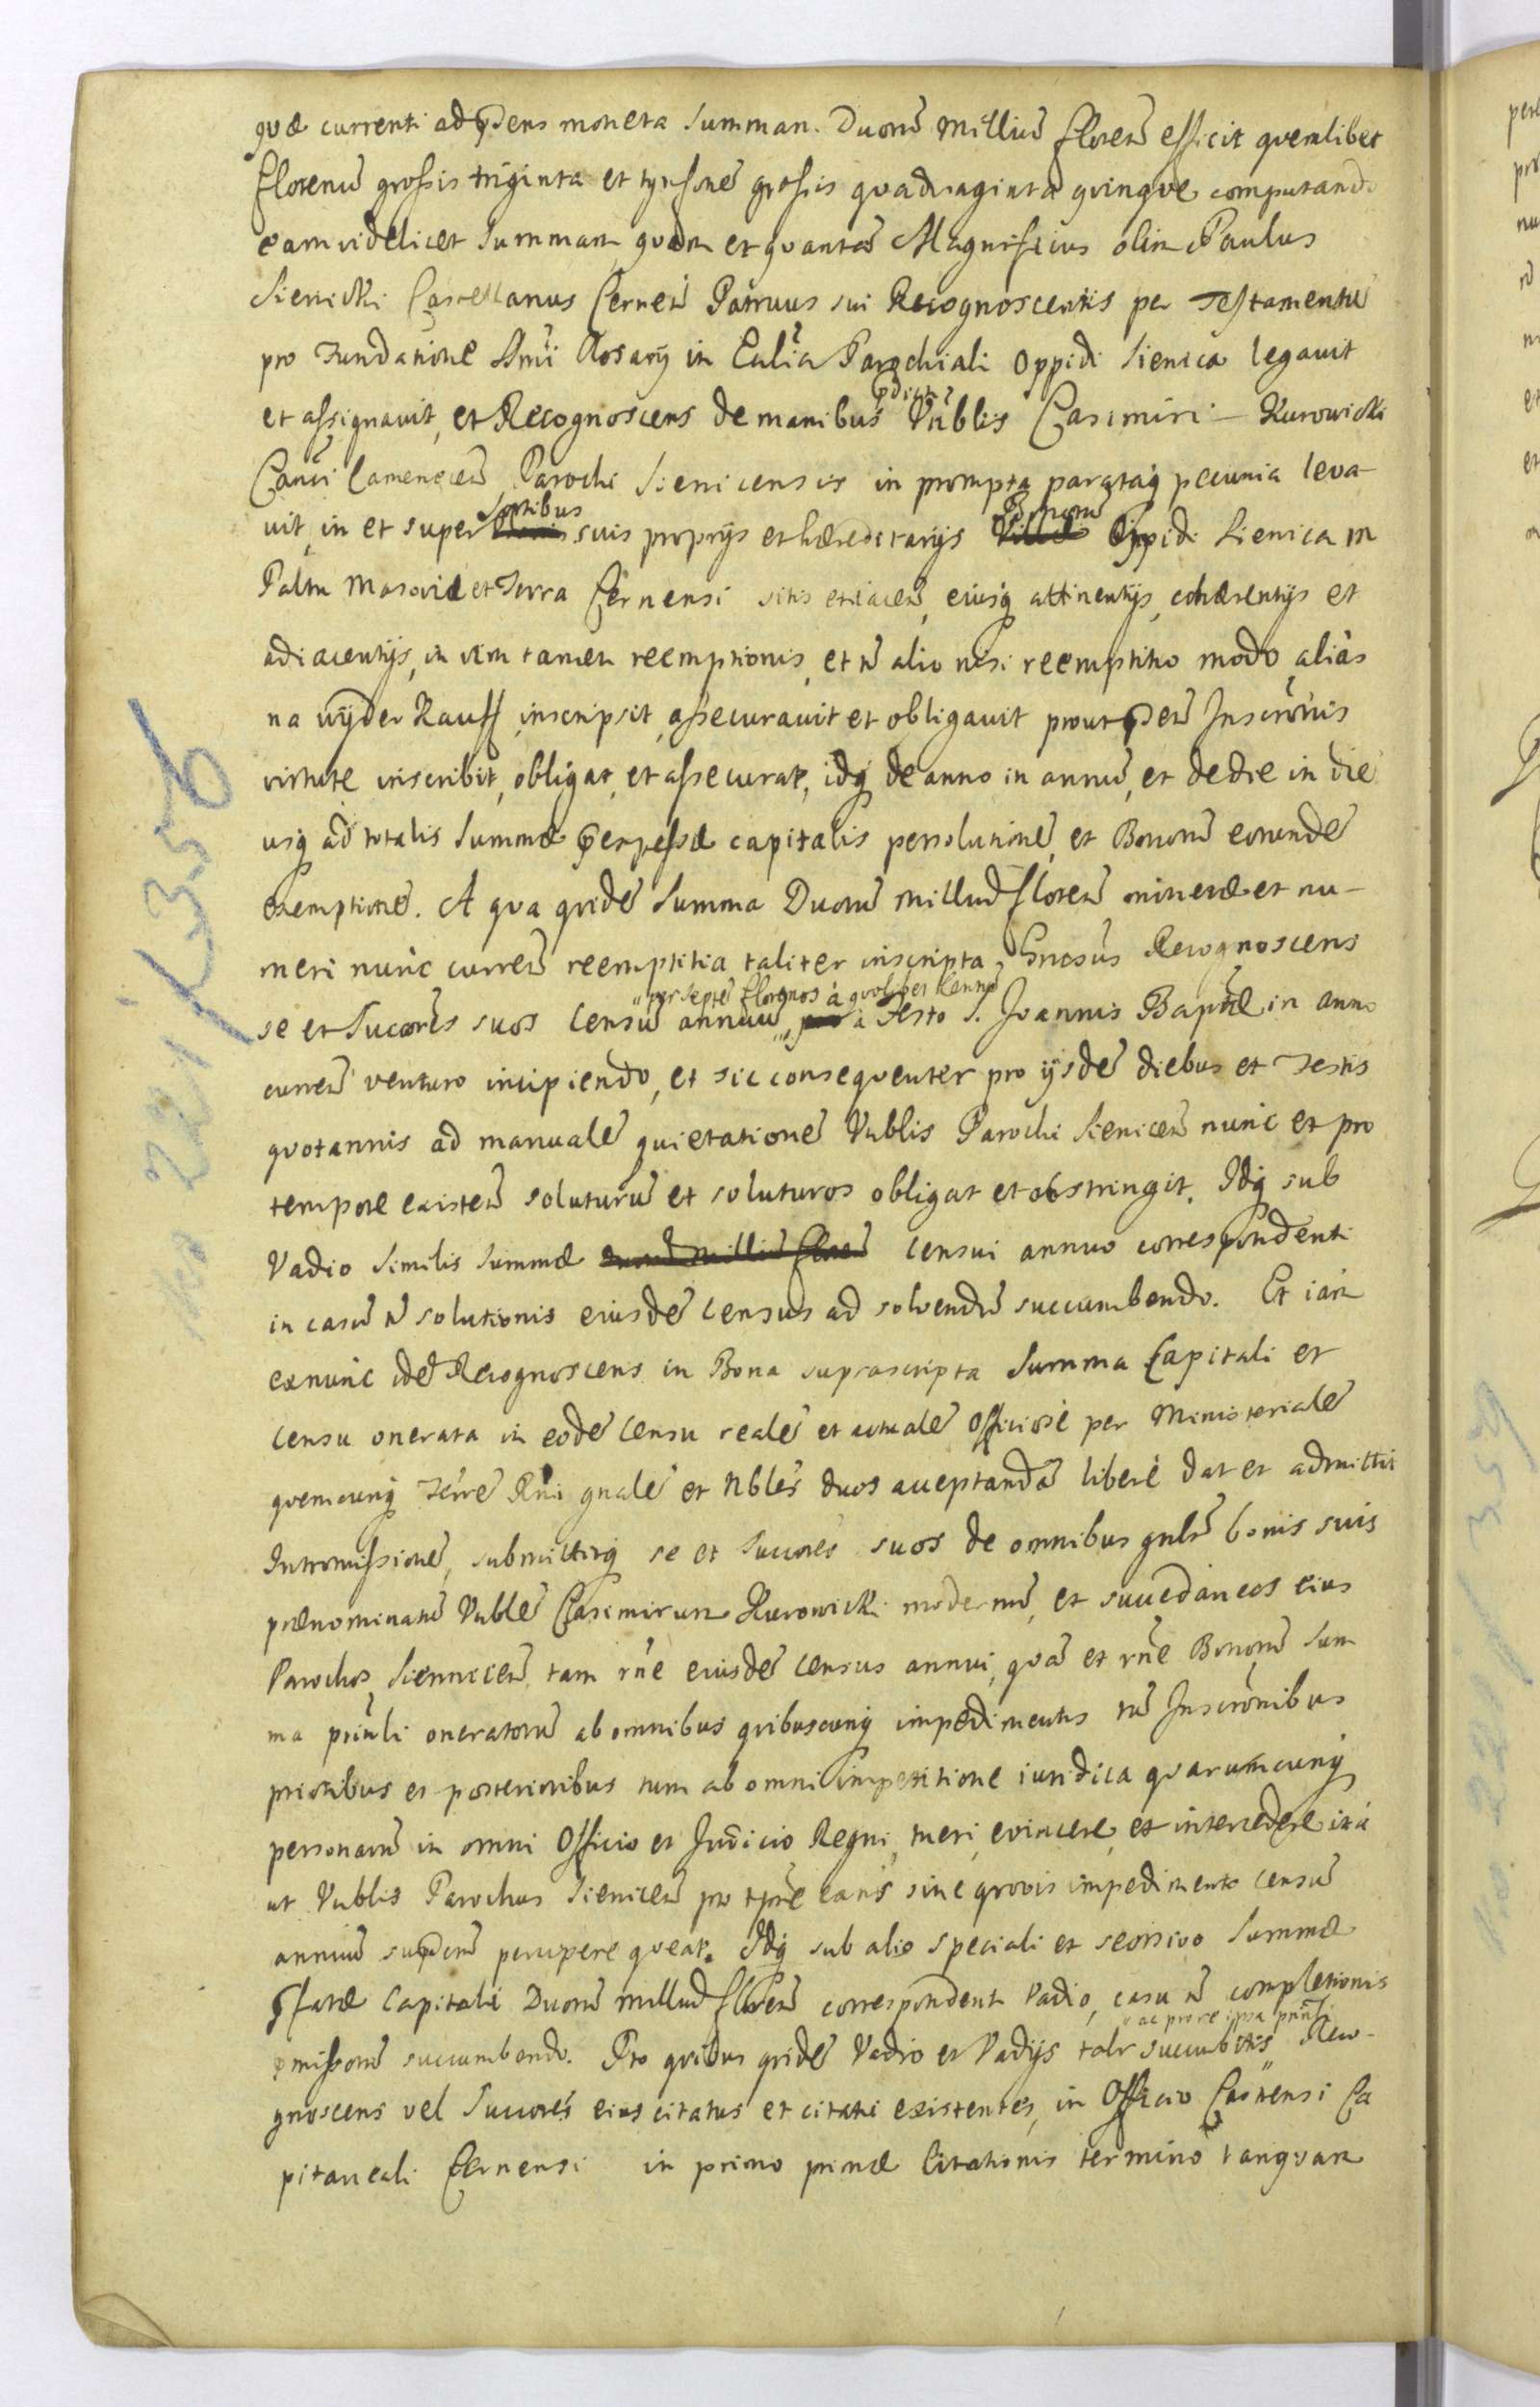 quæ currenti ad pñdens moneta Summam. Duorũ Milliũ florenũ efficit quemlibet
florenũ grossis triginta et tynfonẽ grossis quadraginta quinque computando
eam videlicet Summam quam et quantã Magnificus olim Paulus
Sienicki Castellanus Cernen̄ Patruus sui Recognoscentis per Testamentũ
pro Fundatione Smi Rosarij in Ecclia Parochiali Oppidi Sienica legavit
et assignavit, et Recognoscens de manibus pdicti Vnblis Casimiri Kurowicki
Canci Camenecen̄ Parochi Sienicensis in prompta parataq pecunia leva-
vit, in et super Sortibus suis proprijs et hæreditarijs Bonorum Oppidi Sienica in
Palttu Masoviæ et Terra Cernensi sitis et iacen̄, eiusq attinentijs, cohærentijs et
adiacentijs, in vim tamen reemptionis, et ñ alio nisi reemptitio modo, aliàs
na wyder Kauff, inscripsit, assecuravit et obligavit prout pñden̄ Inscrõnis
virtute inscribit, obligat, et assecurat, idq de anno in annũ, et de die in diẽ
usq ad totalis Summæ pexpressæ capitalis persolutionẽ, et Bonorũ eorundẽ
exemptionẽ. A qua quidẽ Summa Duorũ Milliũ florenũ monetæ et nu-
meri nunc curren̄ reemptitia taliter inscripta, Gnosus Recognoscens
se et Succores suos Censũ annuũ „per septẽ florenos à quolibet Centũ „ à Festo S. Joannis Baptæ in anno
curren̄ venturo incipiendo, et sic consequenter pro ijsdẽ diebus et Festis
quotannis ad manualẽ quietationẽ Vnblis Parochi Sienicen̄ nunc et pro
tempore existen̄ soluturũ et soluturos obligat et obstringit. Idq sub
Vadio Similis Summæ Censui annuo correspondenti
in casũ ñ solutionis eiusdẽ Census ad solvendũ succumbendo. Et iam
exnunc idẽ Recognoscens in Bona suprascripta Summa Capitali et
Censu onerata in eodẽ Censu realẽ et actualẽ Officiosè per Ministerialẽ
quemcunq Terrẽ Rni gnalẽ et Nblẽs duos acceptandã liberè dat et admittit
Intromissionẽ, submittitq se et Succorẽs suos de omnibus gnlr bonis suis
prænominatũ Vnblẽ Casimirum Kurowicki modernũ, et succedaneos eius
Parochos Siennicen̄ tam rñe eiusdẽ Census annui, quã et rñe Bonorũ Sum
ma prinli oneratorũ ab omnibus quibuscunq impedimentis tũ Inscrõnibus
prioribus et posterioribus tum ab omni impetitione iuridica quarumcunq
personarũ in omni Officio et Judicio Regni, tueri, evincere, et intercedere ità
ut Vnblis Parochus Sienicen̄ pro tpñe exñs sine quovis impedimento Censũ
annuũ supden̄ percipere queat. Idq sub alio speciali et seorsivo Summæ
pfatæ Capitali Duorũ milliũ florenũ correspondenti Vadio, casu ñ completionis
pmissorũ succumbendo. Pro quibus quidẽ Vadio et Vadijs talr succubitis „ac pro re ipsa prinli„ Reco-
gnoscens vel Succorẽs eius citatus et citati existentes, in Officio Castrensi Ca
pitaneali Cernensi in primo primæ Citationis termino tanquam